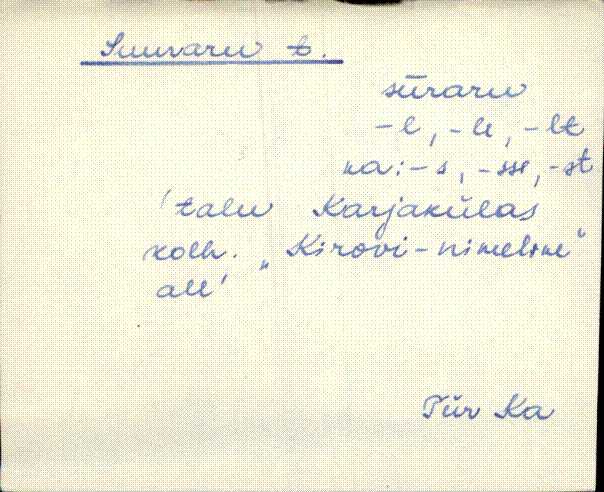 Suuraru t.
sūraru
-l, -le, -lt
na: -s, -sse, -st
'talu Karjakülas
kolh. „Kirovi-nimeline"
all'
Tür Ka